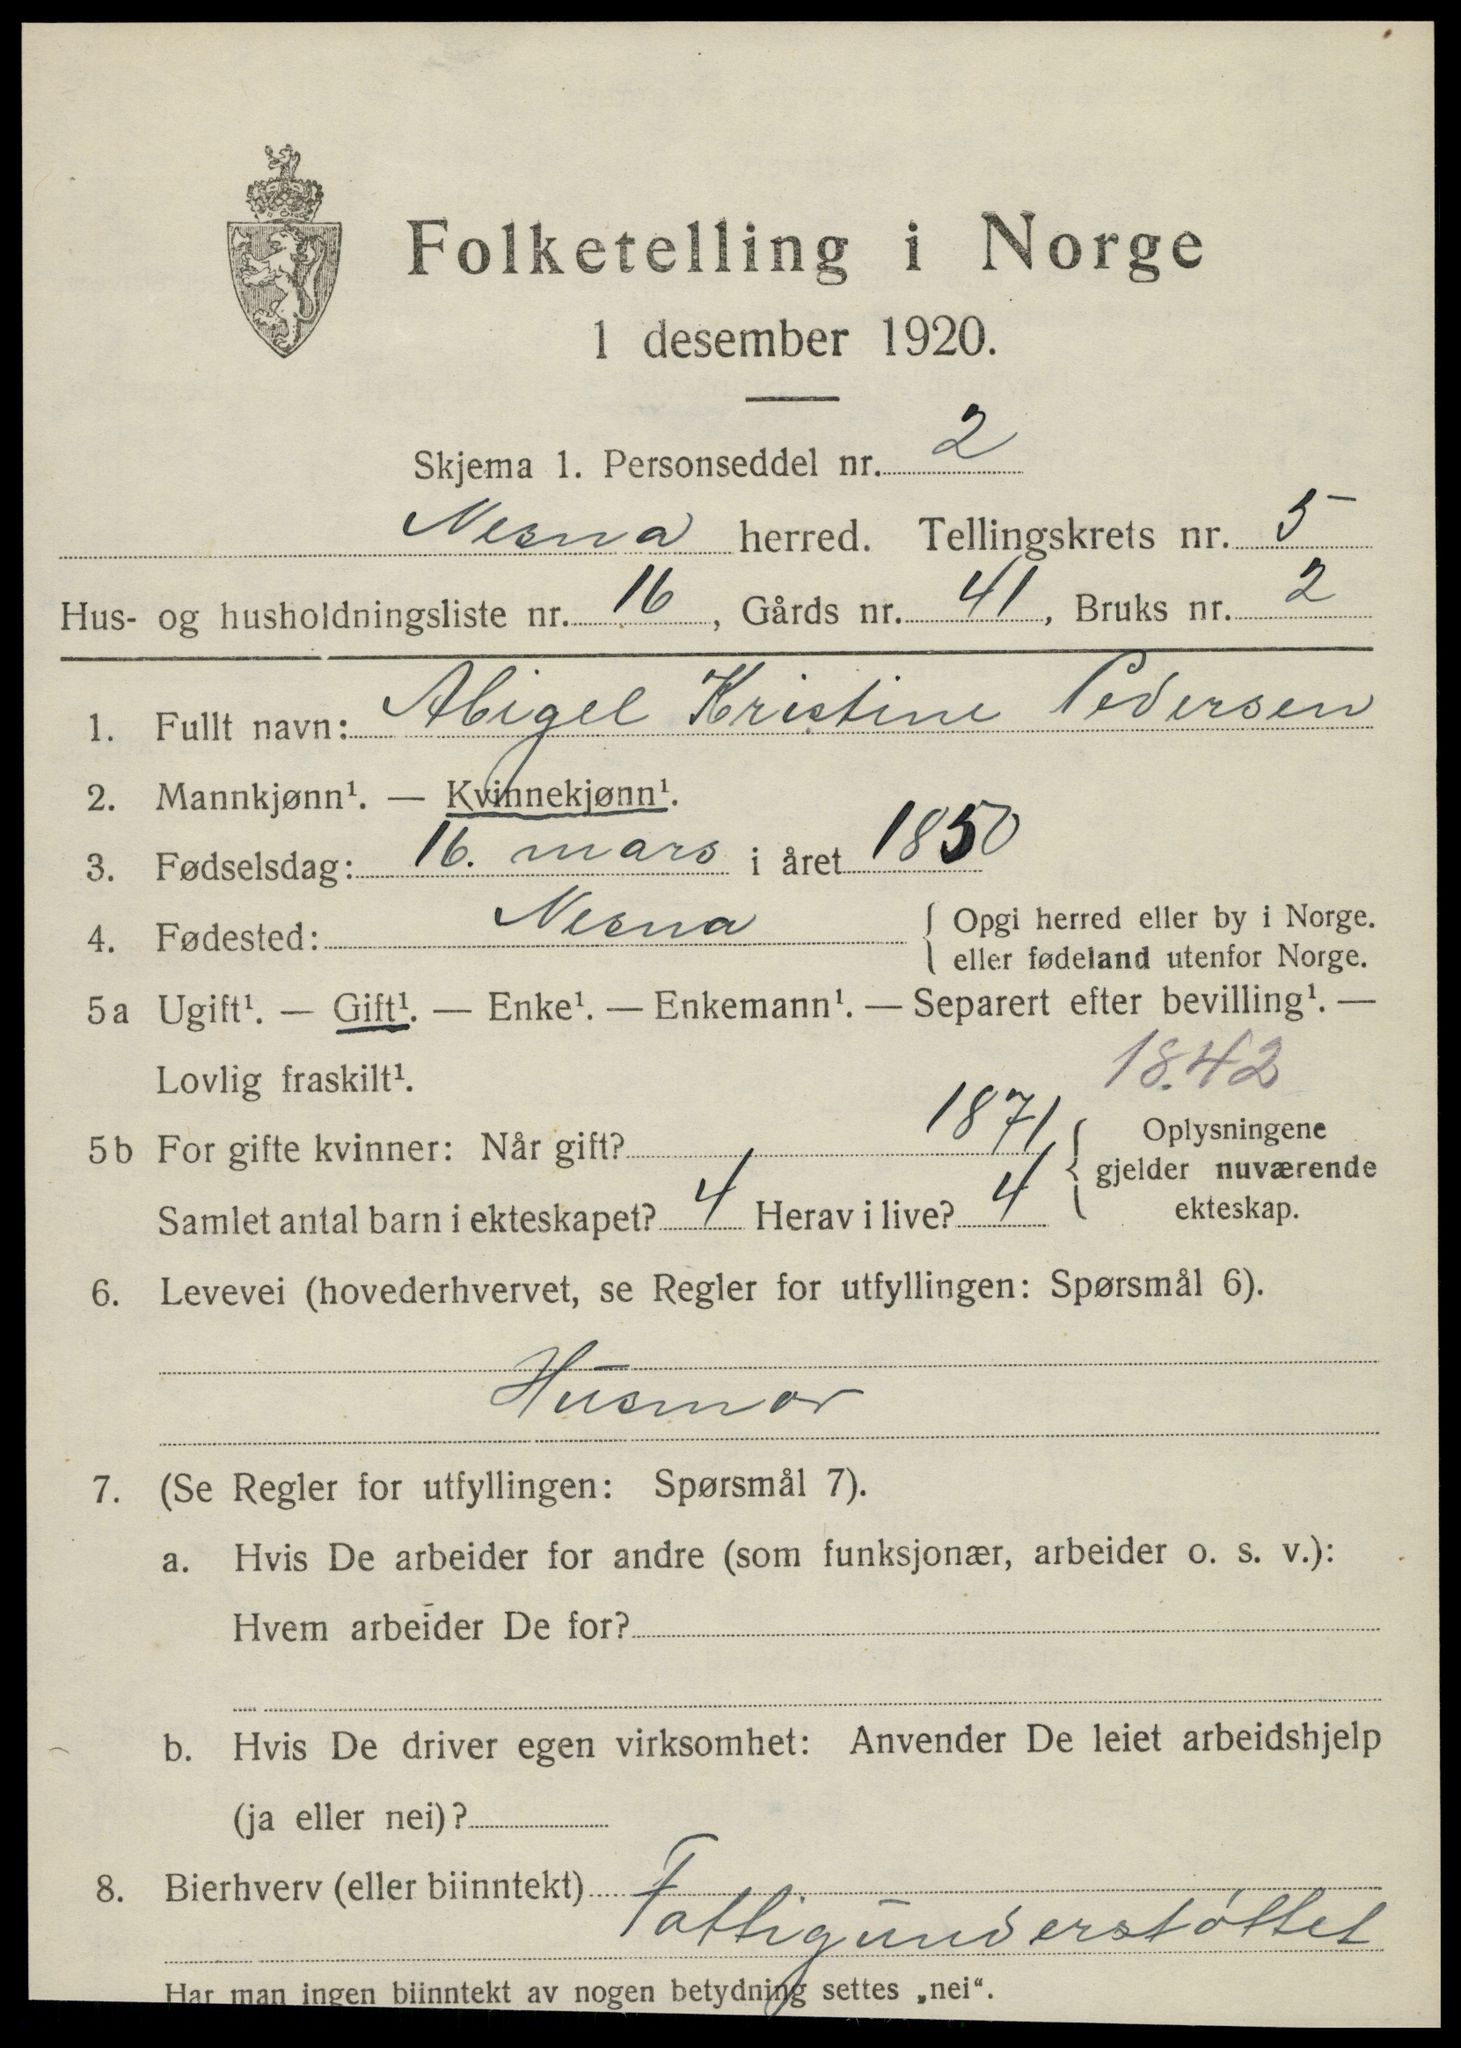 Folketelling i Norge
1 desember 1920.
Skjema 1. Personseddel nr. 2
Nesna herred. Tellingskrets nr. 5
Hus- og husholdningsliste nr. 16, Gårds nr. 41, Bruks nr. 2
1. Fullt navn: Abigel Kristine Pedersen
2. Mannkjønn¹. — Kvinnekjønn¹.
3. Fødselsdag: 16. mars i året 1850
4. Fødested: Nesna { Opgi herred eller by i Norge.
eller fødeland utenfor Norge.
5a Ugift¹. — Gift¹. — Enke¹. — Enkemann¹. — Separert efter bevilling¹. —
Lovlig fraskilt¹. 18.42
5b For gifte kvinner: Når gift? 1871, { Oplysningene
gjelder nuværende
Samlet antal barn i ekteskapet? 4 Herav i live? 4 ekteskap.
6. Levevei (hovederhvervet, se Regler for utfyllingen: Spørsmål 6).
Husmor
7. (Se Regler for utfyllingen: Spørsmål 7).
a. Hvis De arbeider for andre (som funksjonær, arbeider o. s. v.):
Hvem arbeider De for?
b. Hvis De driver egen virksomhet: Anvender De leiet arbeidshjelp
(ja eller nei)?
8. Bierhverv (eller biinntekt) Fattigunderstøttet
Har man ingen biinntekt av nogen betydning settes „nei“.